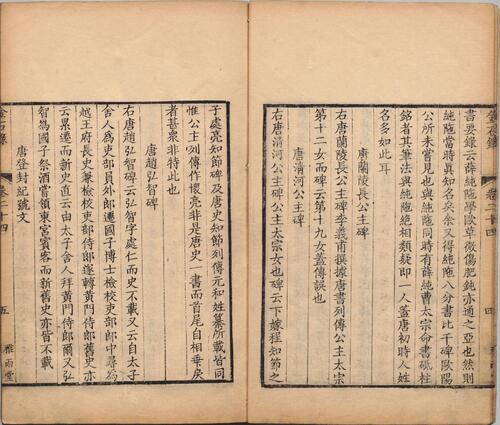 書要錄云薛純陁學歐草微傷肥鈍亦通之亞也然則
純陁當時眞知名矣余又得純陁八分書比干碑歐陽
公所未嘗見也與純陁同時有薛純曹太宗命書砥柱
銘者其筆法與純陁絶相類疑即一人蓋唐初時人姓
名多如此耳
唐蘭陵長公主碑
右唐蘭陵長公主碑李義甫撰據唐書列傳公主太宗
第十二女而碑云第十九女蓋傳誤也
唐淸河公主碑
右唐淸河公主碑公主太宗女也碑云下嫁程知節之
金石錄 卷二十四 四
子處亮知節碑及唐史知節列傳元和姓纂所載皆同
惟公主列傳作懷亮非是唐史一書而首尾自相乖戾
者甚衆非特此也
唐趙弘智碑
右唐趙弘智碑云弘智字處仁而史不載又云自太子
舍人爲吏部員外郎遷國子博士檢校吏部郎中尋爲
越王府長史兼檢校吏部侍郎遂轉黃門侍郎舊史亦
云累遷而新史直云由太子舍人拜黃門侍郎爾又弘
智爲國子祭酒嘗領東宮賓客而新舊史亦皆不載
唐登封紀號文
金石錄 卷二十四 五 雅雨堂